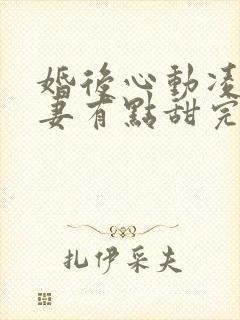 婚後心動凌
妻有點甜完
扎伊采夫